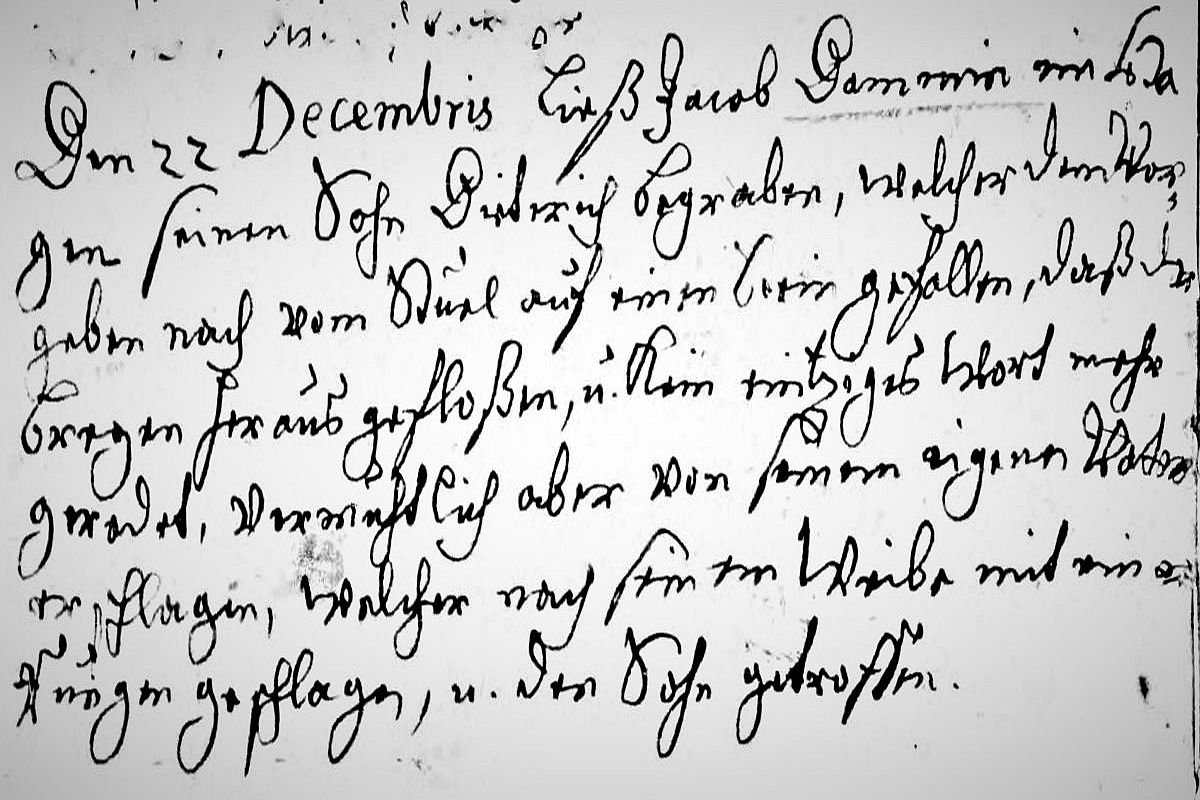 Den 22 Decembris Ließ Jacob Dammin ein
gen seinen Sohn Dieterich begraben, welcher dem Vor
geben nach vom Stuel auf einen Stein gefallen, daß der
bregen heraus gefloßen, u. kein eintziges Wort mehr
geredet, vermuhtlich aber von seinem eigenen Vater
erschlagen, welcher nach seinem Weibe mit einer
geschlagen, u. den Sohn getroffen.